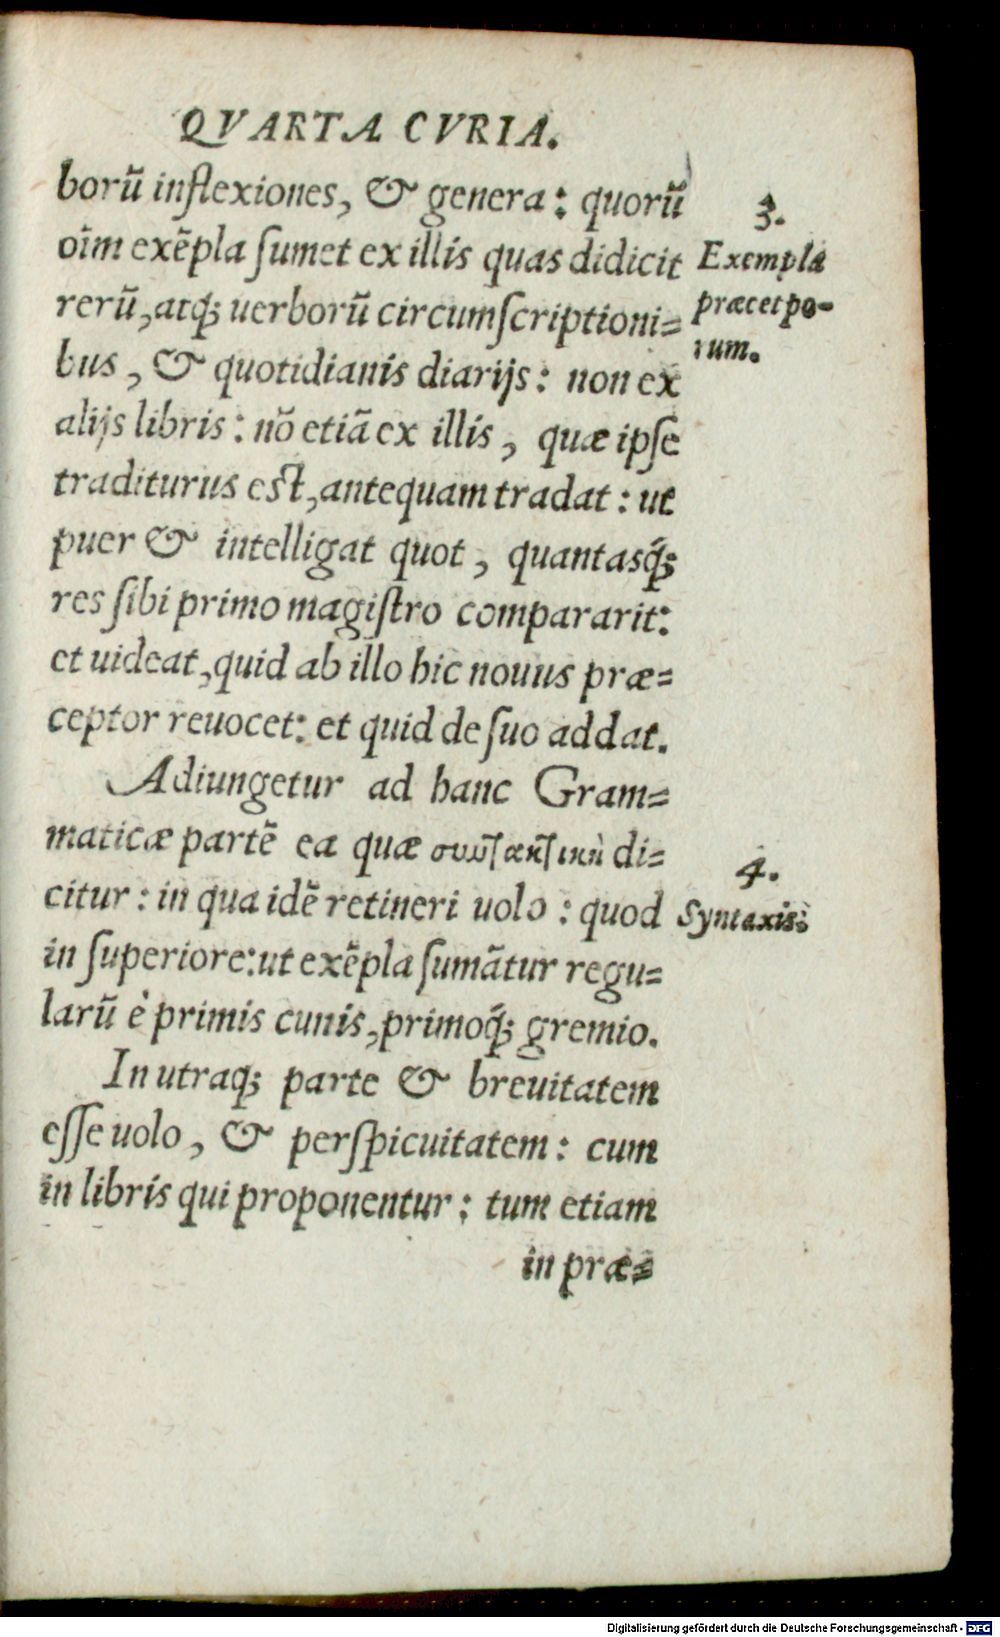 QVARTA CVRIA.
borũ inflexiones, & genera: quorũ
oĩm exẽpla ſumet ex illis quas didicit
rerũ, atq; uerborũ circumſcriptioni=
bus, & quotidianis diarijs: non ex
alijs libris: nõ etiã ex illis, quæ ipſe
traditurus eſt, antequam tradat: ut
puer & intelligat quot, quantasq́;
res ſibi primo magiſtro compararit:
et uideat, quid ab illo hic nouus præ=
ceptor reuocet: et quid de ſuo addat.
Adiungetur ad hanc Gram=
maticæ partẽ ea quæ συντακτικὴ di=
citur: in qua idẽ retineri uolo: quod
in ſuperiore: ut exẽpla ſumãtur regu=
larũ è primis cunis, primoq́; gremio.
In utraq; parte & breuitatem
eſſe uolo, & perſpicuitatem: cum
in libris qui proponentur: tum etiam
in præ=
3.
Exempla
præcetpo-
rum.
4.
Syntaxis:
Digitalisierung gefördert durch die Deutsche Forschungsgemeinschaft - DFG